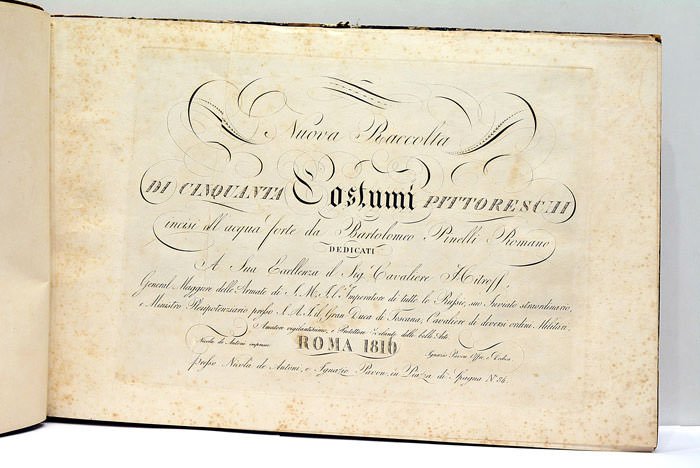 Nuova Raccolta
DI CINQUANTA Costumi PITTORESCHI
incisi all'acqua forte da Bartolomeo Pinelli Romano
DEDICATI
A Sua Eccellenza il Sig. Cavaliere Hitroff,
General Maggiore delle Armate di S. M. I. l'Imperatore di tutte le Russie, suo Inviato straordinario,
e Ministro Plenipotenziario presso S. A. I. il Gran Duca di Toscana, Cavaliere di diversi ordini Militari,
Amatore e Protettore delle belle Arti
Nicola de Antoni impresse
ROMA 1816
Ignazio Pavon
presso Nicola de Antoni, e Ignazio Pavon in Piazza di Spagna N.